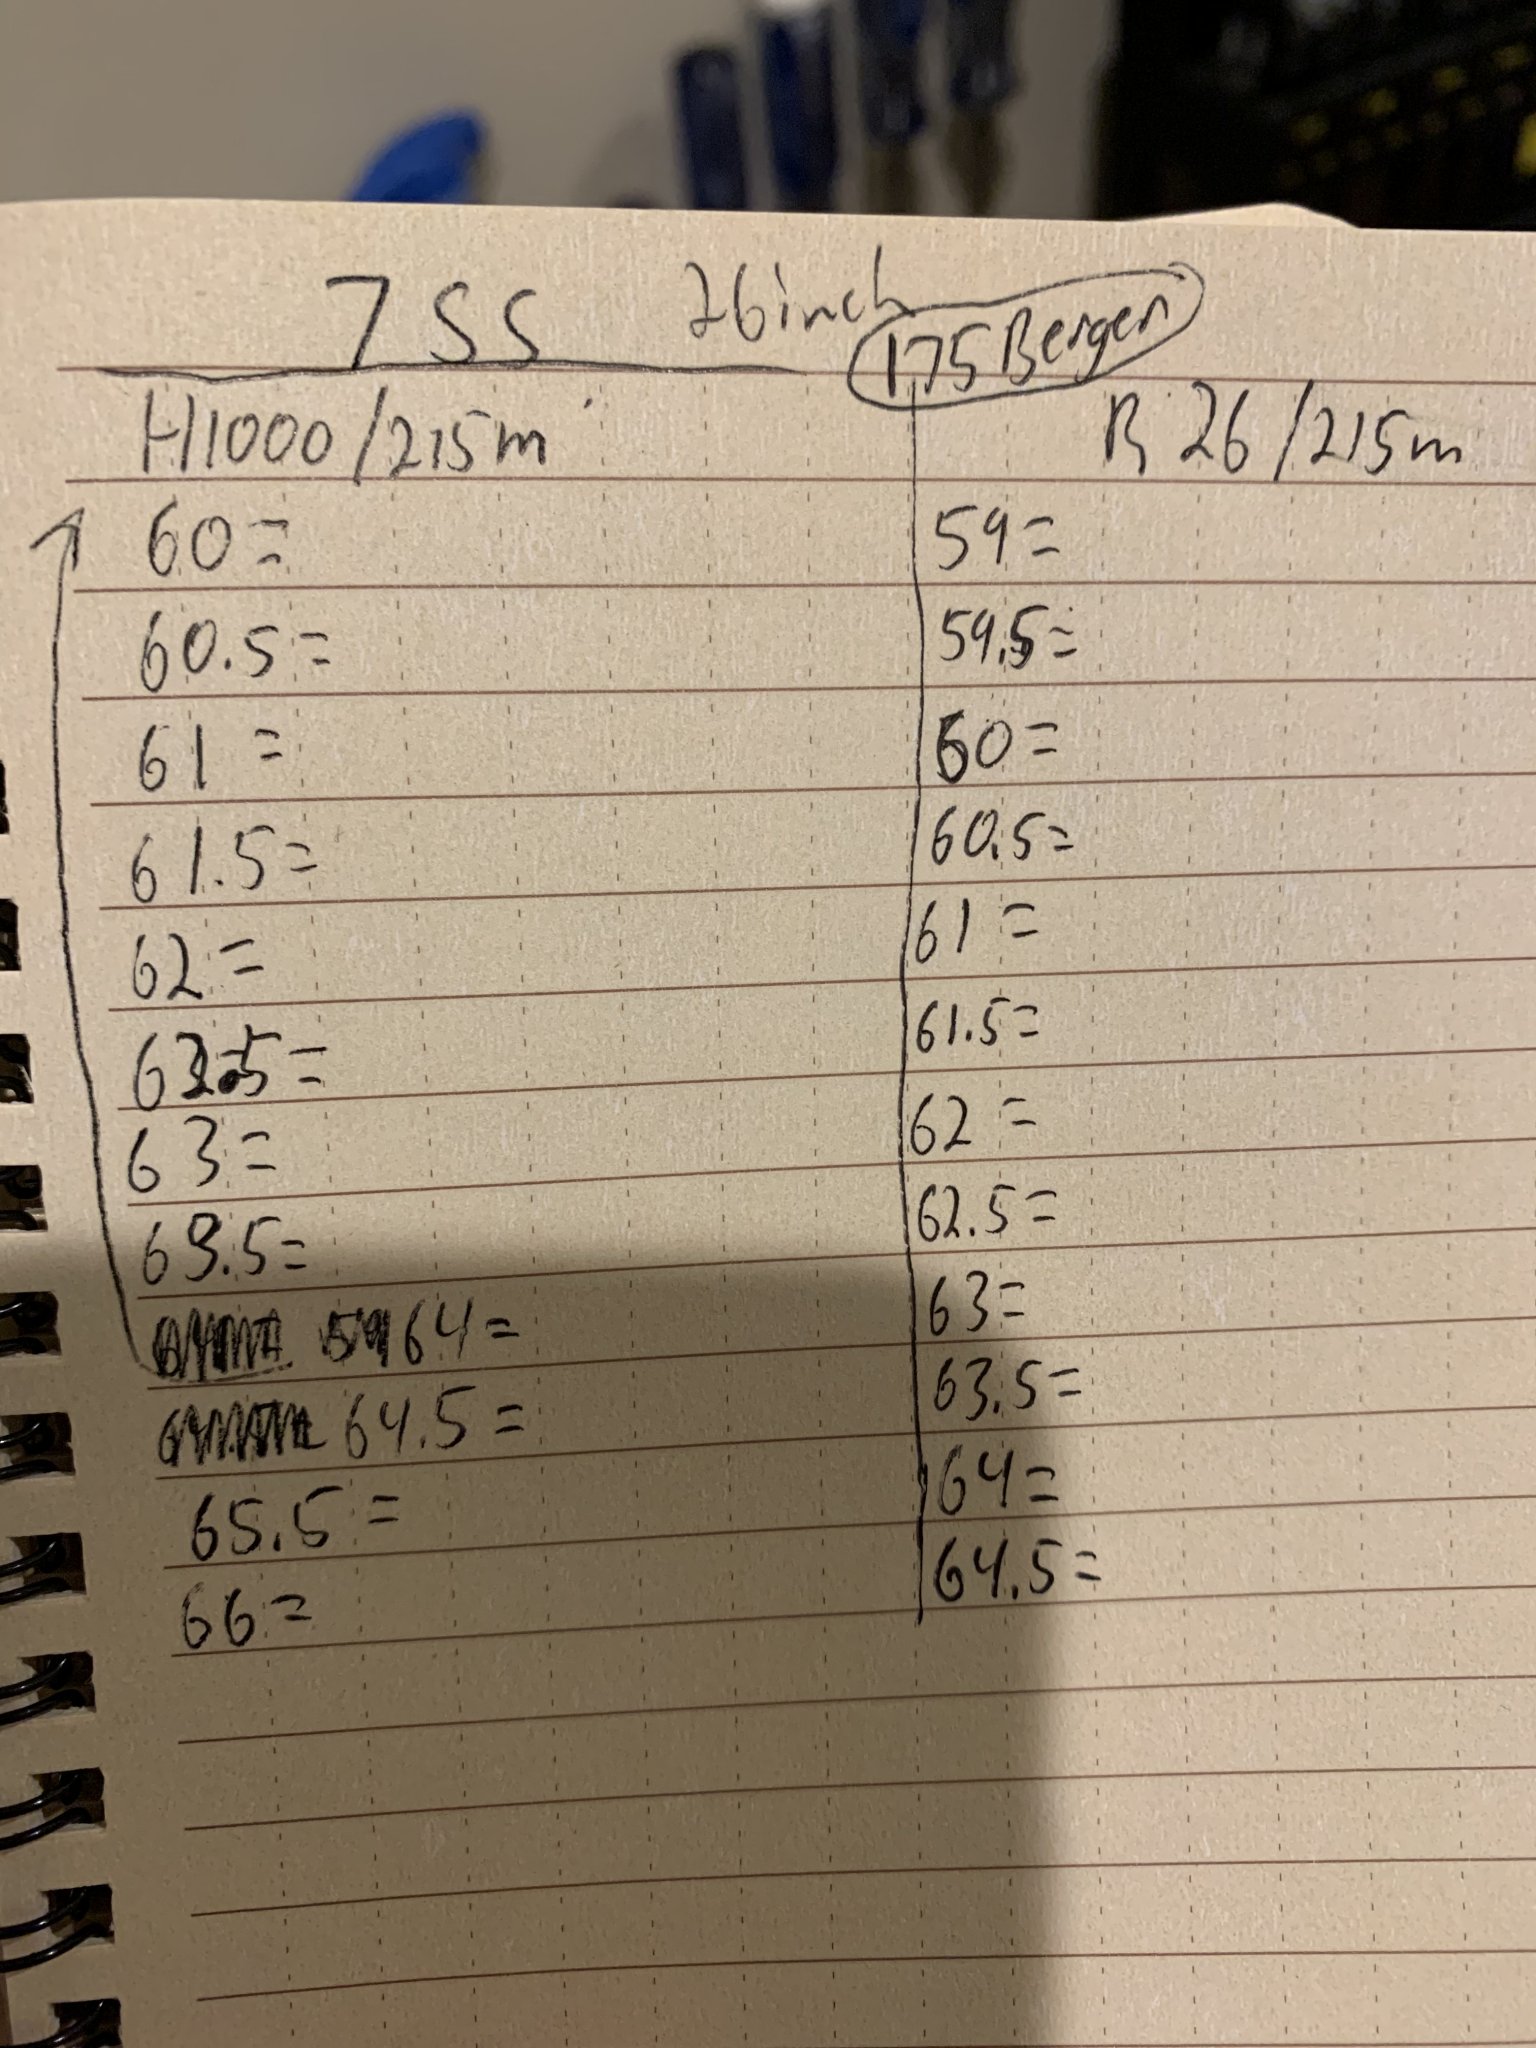 7 SS 26 inch
175 Bergen
H1000/215m
60=
60.5=
61 =
61.5=
62=
62.5=
63=
63.5=
64=
64.5=
65.5=
66=
R 26/215m
59=
59.5=
60=
60.5=
61 =
61.5=
62 =
62.5=
63=
63.5=
64=
64.5=